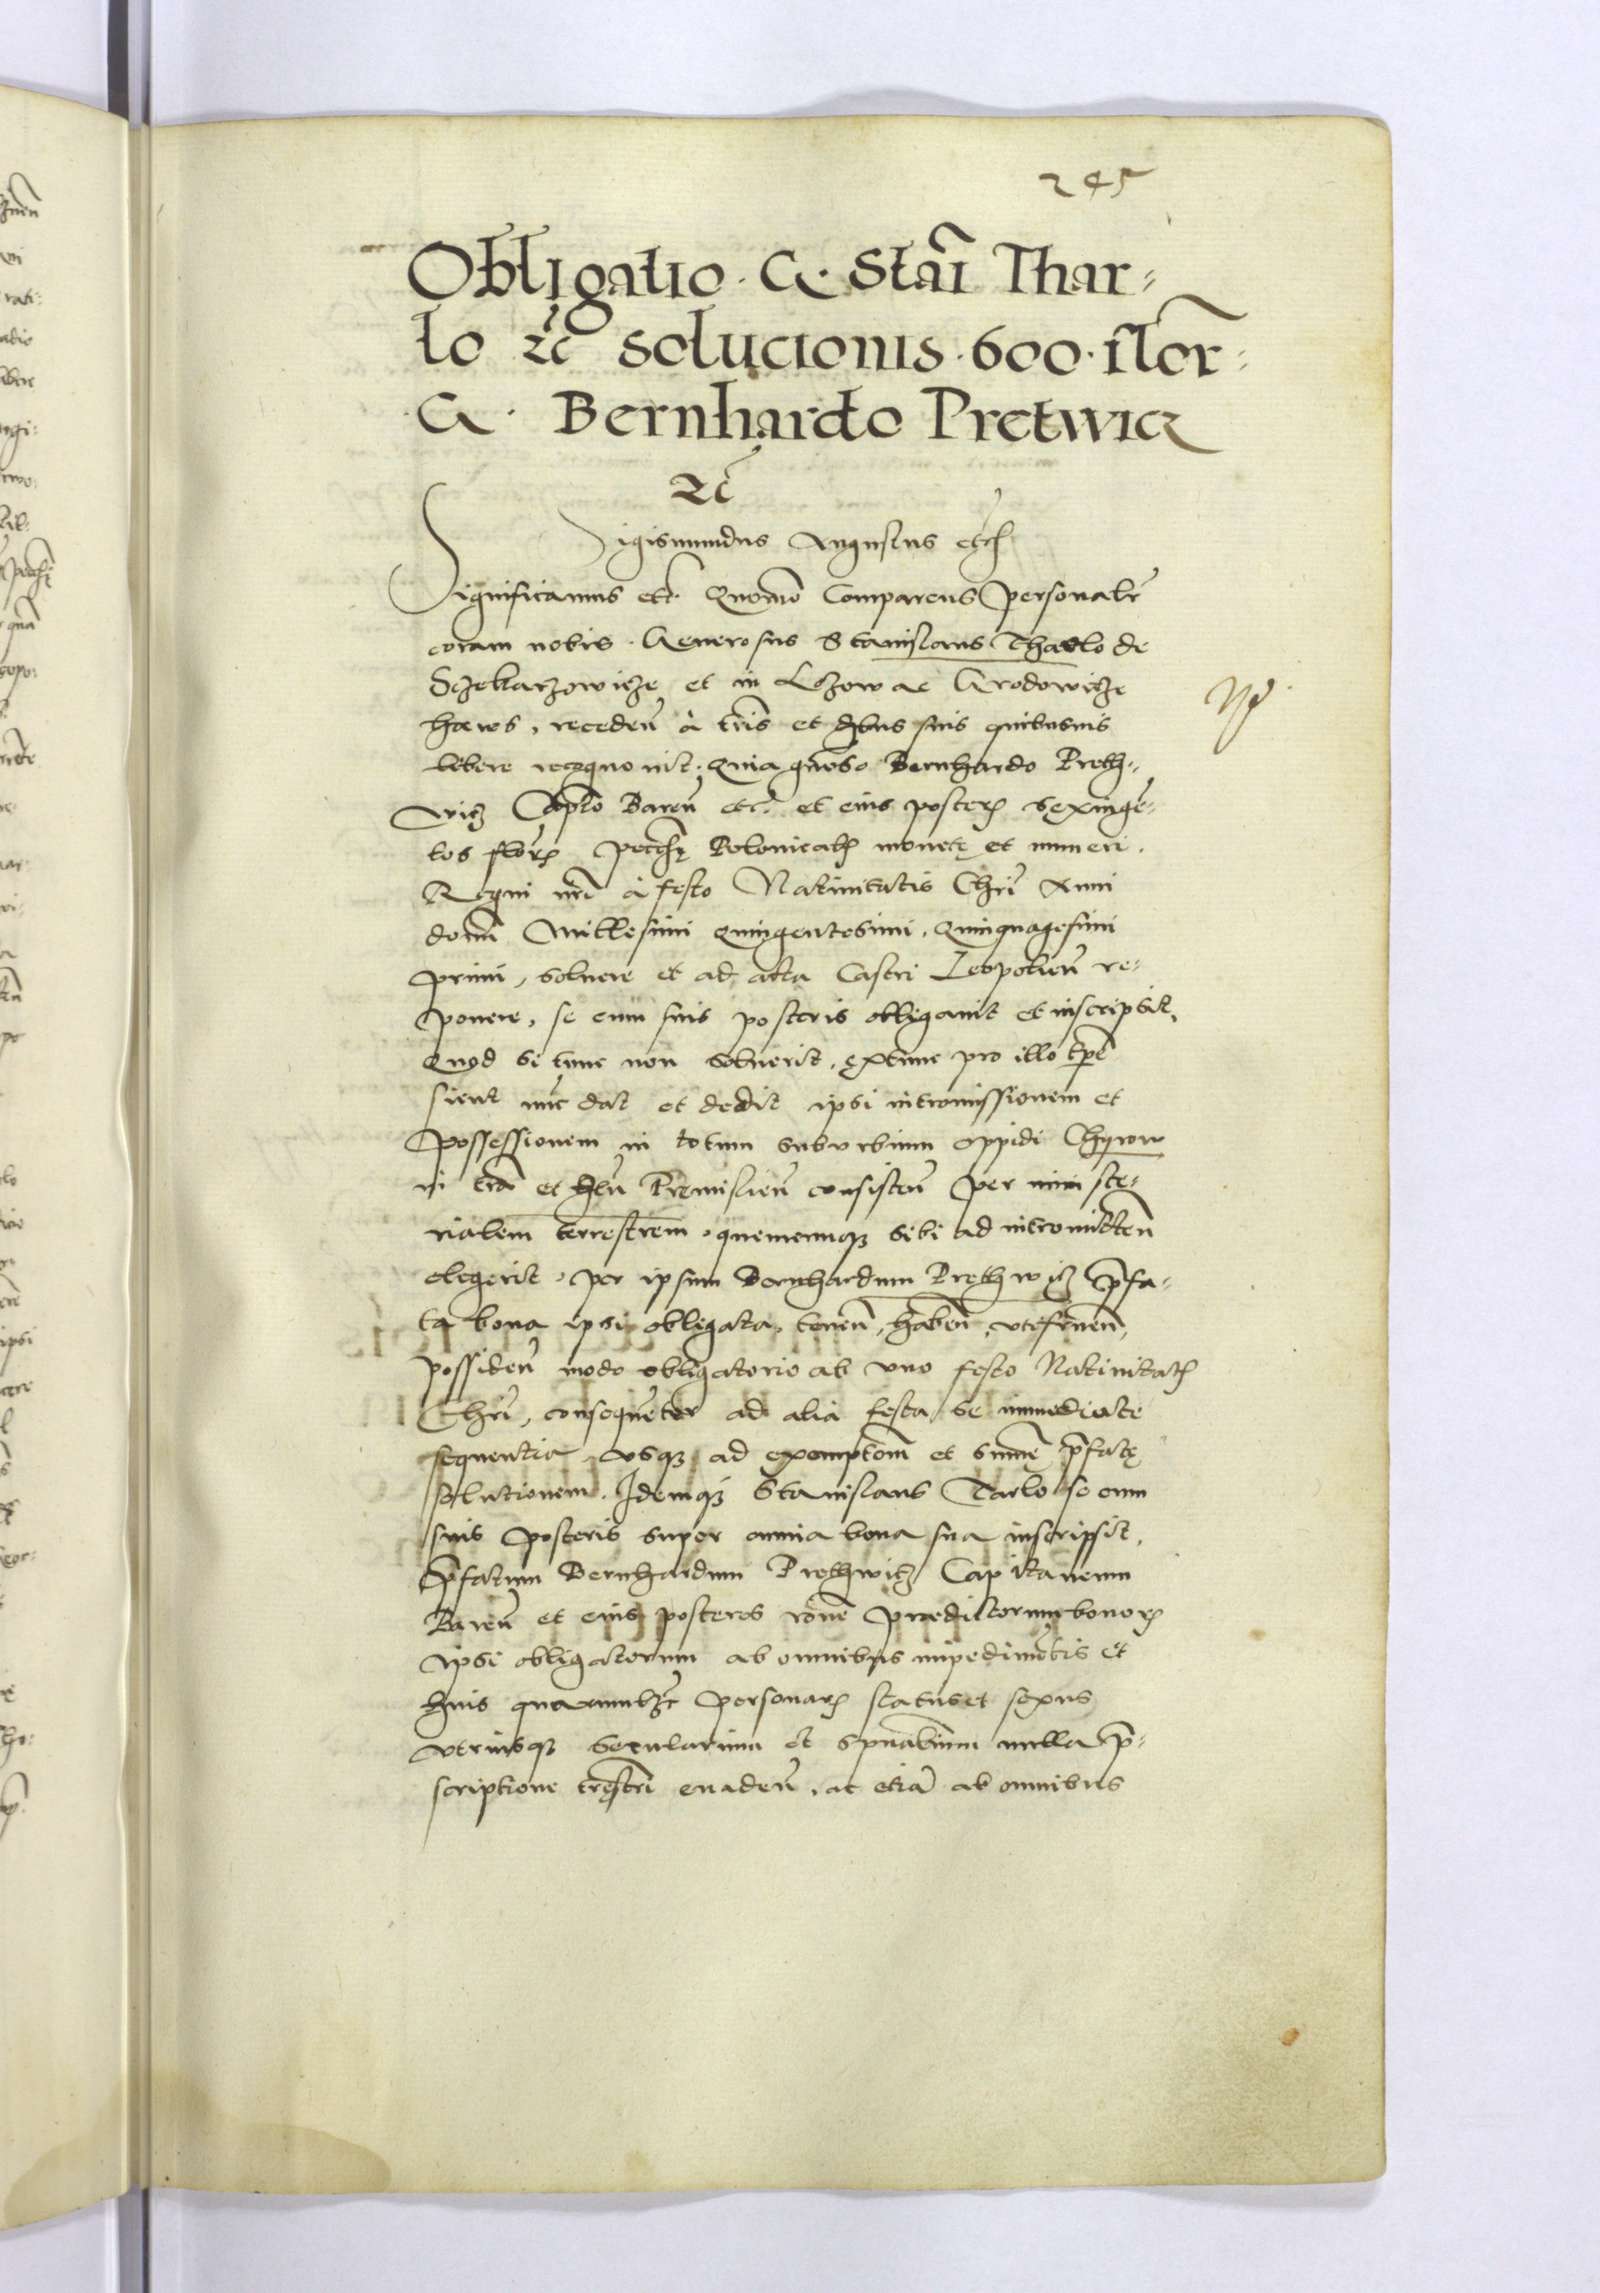 245
Obligatio · G · Stāi Thar=
lo ꝛc̄ solucionis · 600 · flor̄=
G · Bernhardo Pretwicz
ꝛc̄
Sigismundus Augustus etc̄
Significamus etc̄. Quomō Comparens personalr̄
coram nobis. Generosus Stanislaus Tharlo de
Sczekarzowicze et in Lszow ac Grodowicze
hæres, receden̄ à tr̄is et suis quibusuis
libere recognouit. Quia gn̄oso Bernhardo Preth=
wicz Capn̄o Baren̄ etc̄. et eius posterꝭ sexingē=
tos flor̄ꝭ pecc̄hę Polonicalꝭ monetę et numeri.
Regni nr̄i à festo Natiuitatis Chr̄i Anni
domī Millesimi Quingentesimi. Quinquagesimi
primi, soluere et ad acta Castri Leopolien̄ re=
ponere, se cum suis posteris obligauit et inscripsit,
Quod si tunc non soluerit, extunc pro illo tp̄e
sicut nūc dat et dedit ipsi intromissionem et
possessionem in totum suburbium oppidi Chyrow
in tr̄a et Premislien̄ consisten̄ per ministe=
rialem terrestrem. quemcunqꝫ sibi ad intromitten̄
elegerit, per ipsum Bernhardum Prethwicz p̄fa=
ta bona ipsi obligata, tenen̄, haben̄, utifruen̄,
possiden̄ modo obligatorio ab uno festo Natiuitatꝭ
Chr̄i, consequēter ad alia festa se immediate
sequentia, usqꝫ ad exemptōm et sum̄ę p̄fatę
solutionem. Idemqꝫ Stanislaus Tarlo se cum
suis posteris super omnia bona sua inscripsit,
p̄fatum Bernhardum Prethwicz Capitaneum
Baren̄ et eius posteros rōne prædictorum bonorꝭ
ipsi obligatorum ab omnibus impedimētis et
quarumlꝫ personarꝭ status et sexus
utriusqꝫ secularium et sp̄ualium nulla p̄=
scriptione tr̄estri euaden̄, ac etiā ab omnibus